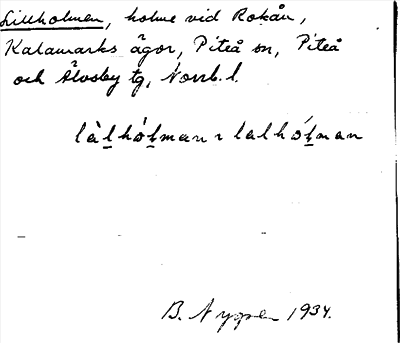 Lillholmen, holme vid Rokån,
Kalamarks ägor, Piteå sn, Piteå
och Älvsby tg, Norrb. l.
làlhólman ɩ lalhólman
B. Nygren 1934.